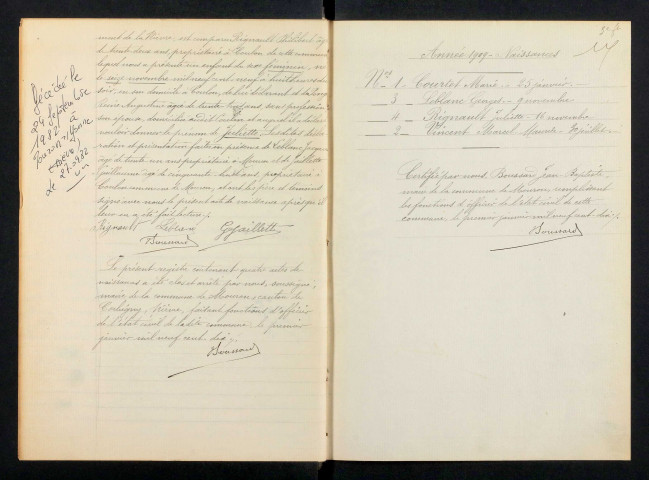 nant de la Nièvre, est comparu Rignault
de trente deux ans, propriétaire à Coulon, de cette commune
lequel nous a présenté un enfant du sexe féminin, né
le seize novembre mil neuf cent neuf à huit heures du
soir, en son domicile à Coulon, de lui déclarant et de
Augustine âgée de trente ans, sans profession
son épouse, domiciliée audit Coulon, et auquel il a déclaré
vouloir donner le prénom de Juliette. Lesdites décla-
ration et présentation faites en présence de Leblanc
âgé de trente ans, propriétaire à Mouron et de Gaillette
Guillaume âgé de cinquante huit ans, propriétaire à
Coulon commune de Mouron, et ont les père et témoins
signé avec nous le présent acte de naissance après qu'il
leur en a été fait lecture./.
Rignault Leblanc GGaillette
Boussard
Le présent registre contenant quatre actes de
naissances a été clos et arrêté par nous, soussigné,
maire de la commune de Mouron, canton de
Corbigny, Nièvre, faisant fonctions d'officier
de l'état civil de ladite commune, le premier
janvier mil neuf cent dix./.
Boussard
Décédée le
24 septembre
1982 à
Le 27.9.1982
Année 1909 - Naissances
Nos 1 Courtot Marie - 25 janvier
3 Leblanc Georges - 9 novembre
4 Rignault Juliette 16 novembre
2 Vincent Marcel Maurice - 7 juillet
Certifié par nous, Boussard Jean-Baptiste
maire de la commune de Mouron, remplissant
les fonctions d'officier de l'état civil de cette
commune, le premier janvier mil neuf cent dix./.
Boussard